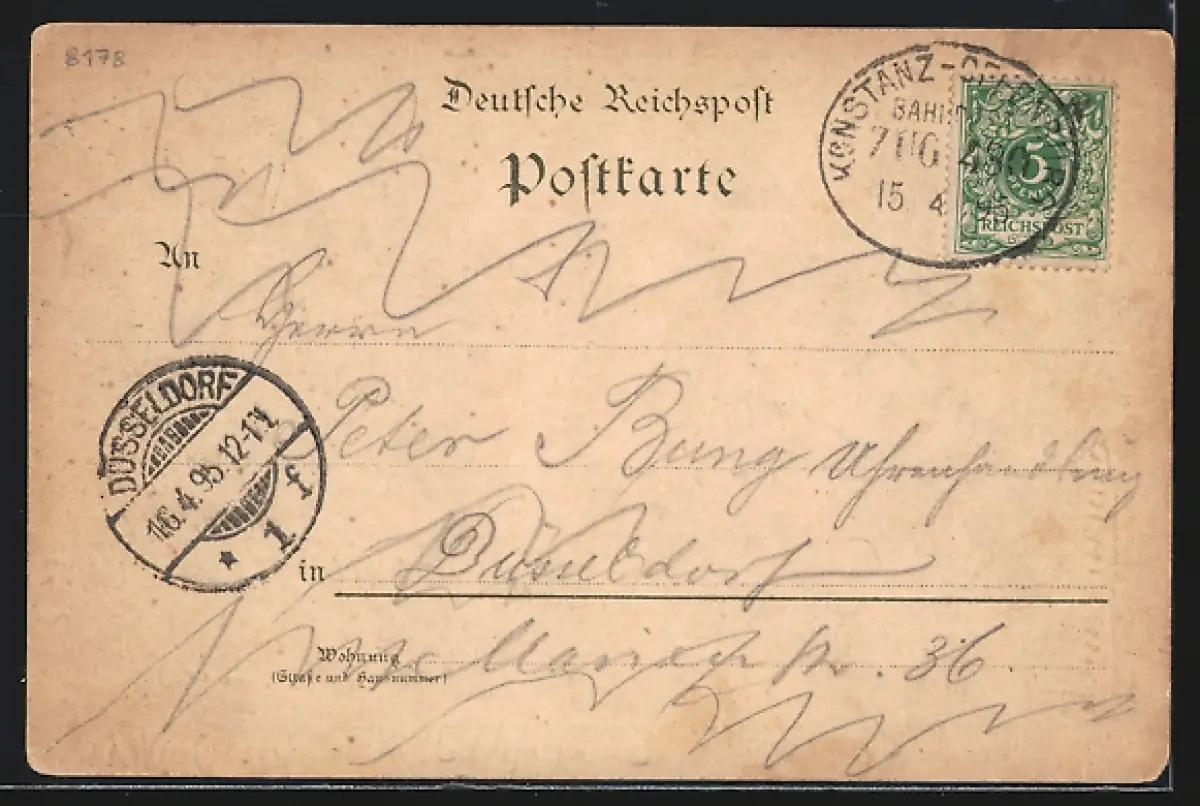 8178
Deutsche Reichspost
Postkarte
KONSTANZ-OFFENBURG
BAHNPOST
ZUG 48
15 4
5
REICHSPOST
An
Herrn
DÜSSELDORF
16.4.95.12-1N.
* 1 f
Peter Bung Uhrenhandlung
in Düsseldorf
Wohnung
(Straße und Hausnummer)
36